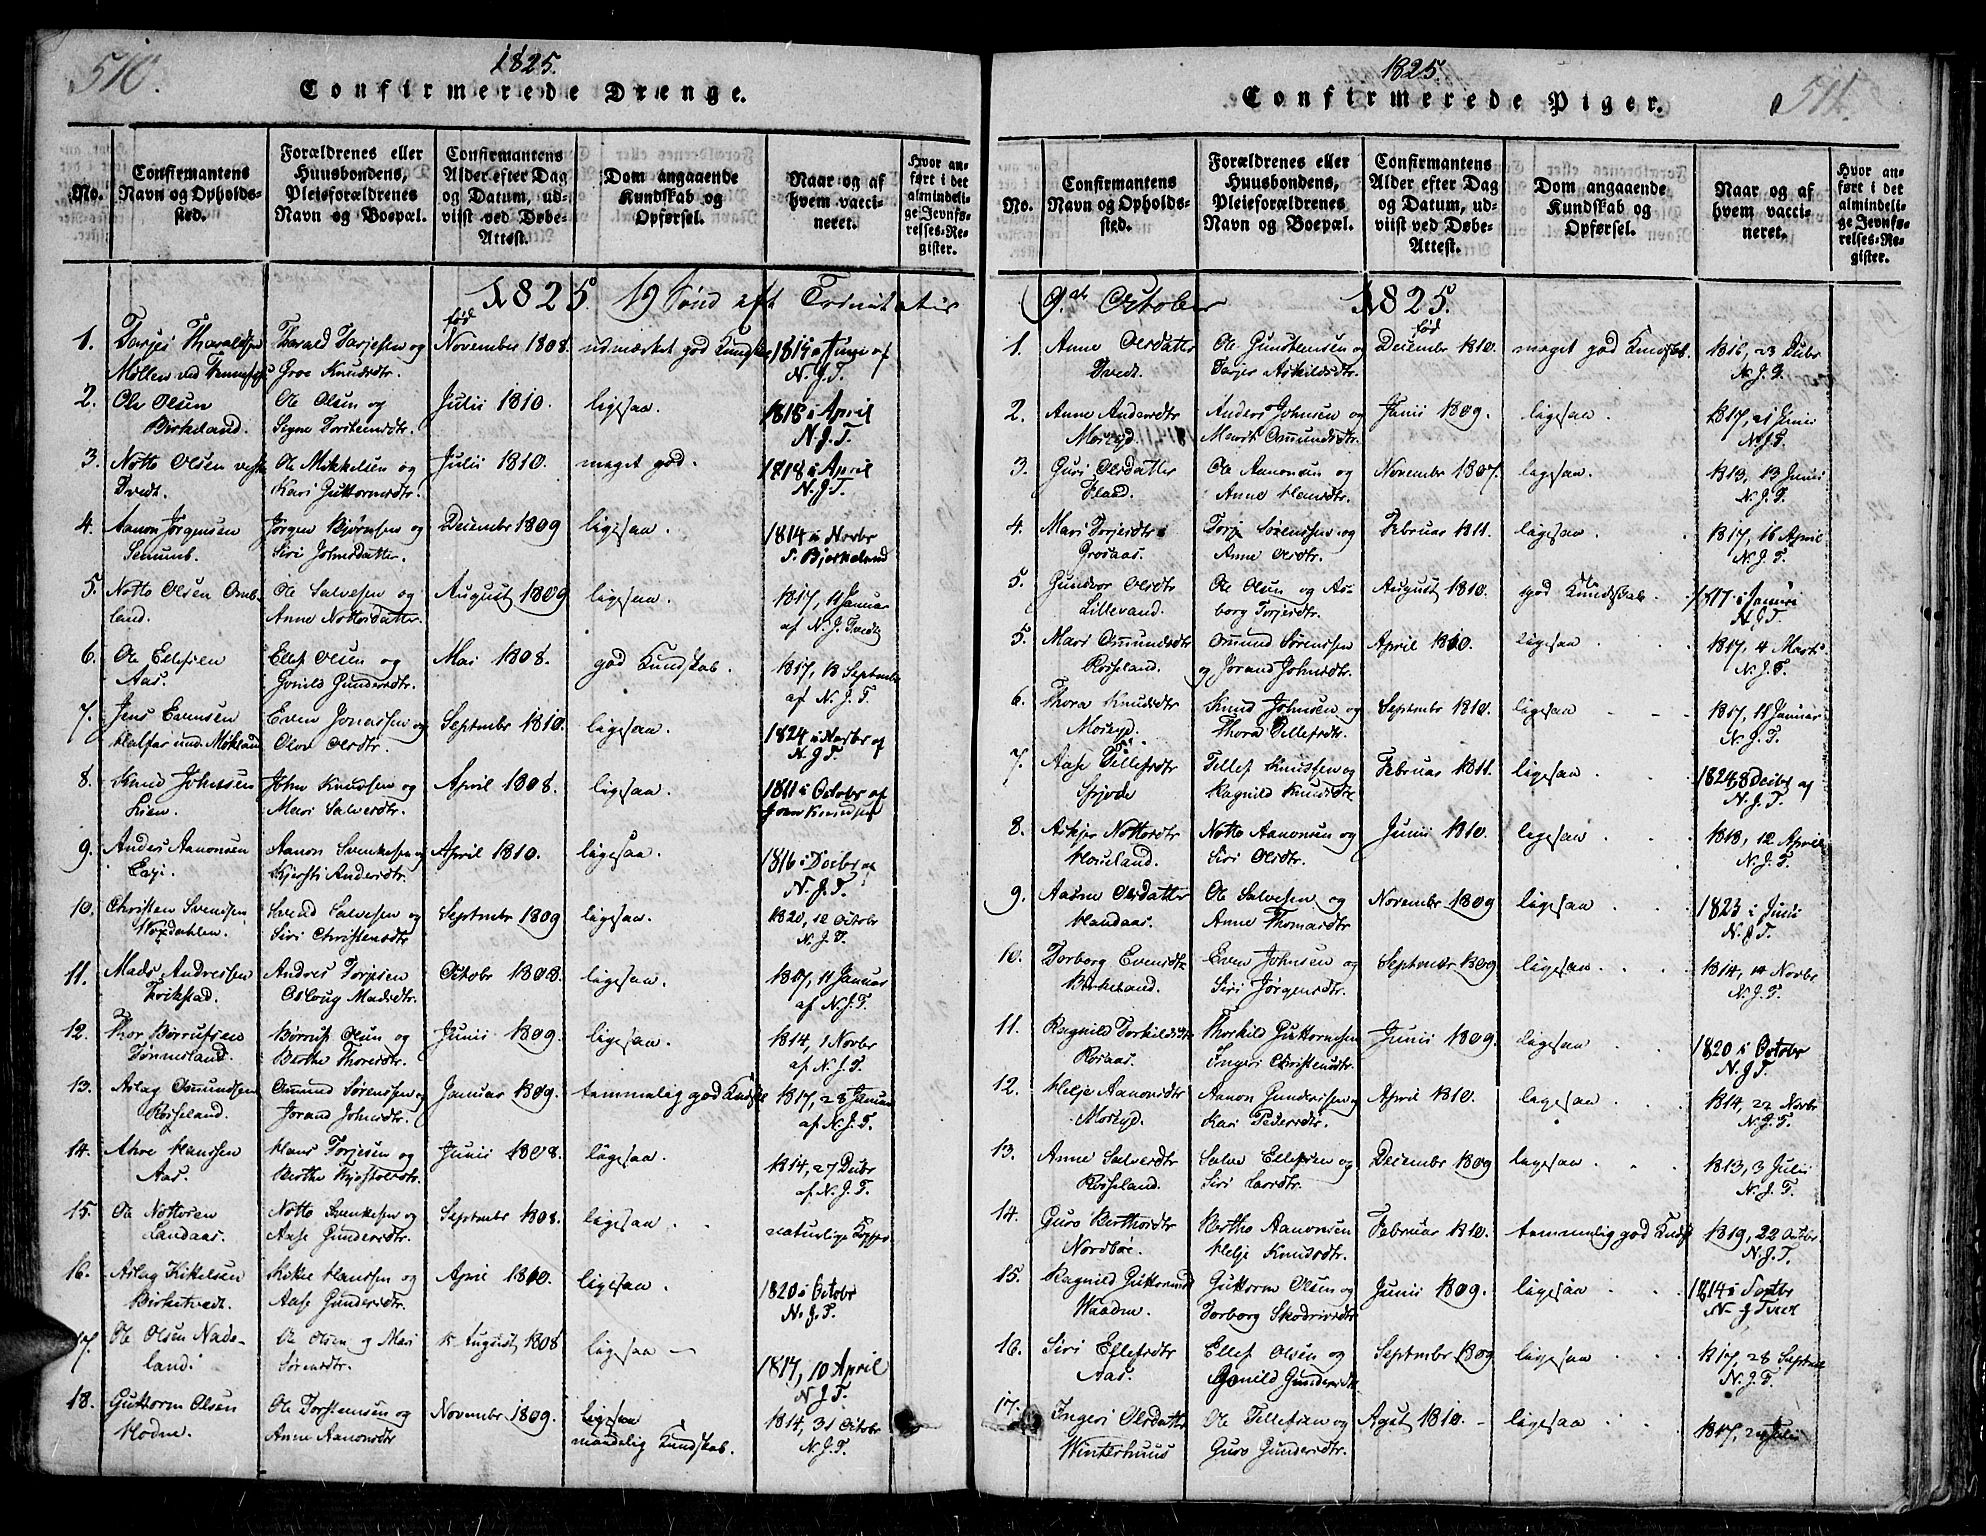 510.
1825.
Confirmerede Drenge.
No.
Confirmantens Navn og Opholdssted.
Forældrenes eller Huusbondens, Pleieforældrenes Navn og Boepæl.
Confirmantens Alder efter Dag og Datum, udviist ved Døbe-Attest.
Dom angaaende Kundskab og Opførsel.
Naar og af hvem vaccineret.
Hvor anført i det almindelige Jevnførelses-Register.
1825. 19 Sønd eft Trinitatis
1. Tarjei Tharaldsen Møllen ved | Tharald Tarjesen og Groe Knudsdtr. | fød November 1808. | udmærket god | 1819 i Juni af N.J.T.
2. Ole Olsen Birkeland. | Ole Olsen og Signe | Julii 1810. | ligesaa. | 1818 i April N.J.T.
3. Notto Olsen Tvedt. | Ole Mikkelsen og Kari Guttormsdtr. | Julii 1810. | meget god. | 1818 i April N.J.T.
4. Aanon Jørgensen | Jørgen Bjørnsen og Siri Johnsdatter. | December 1809 | ligesaa. | 1814 i Novbr S. Bjerkeland
5. Notto Olsen Omland. | Ole Salvesen og Anne Nottosdatter. | August 1809 | ligesaa. | 1817, 11 Januar af N.J. Tvedt
6. Ole Ellefsen Aas. | Ellef Olsen og Gunild Gundersdtr. | Mai 1808. | god Kundskab. | 1817, 13 Septembr af N.J.T.
7. Jens Evensen | Even Jonassen og Olsdtr. | Septembr 1810. | ligesaa. | 1824 i Novbr af N.J.T.
8. Knud Johnsen Lien. | John Knudsen og Mari Salvesdtr. | April 1808. | ligesaa. | 1811 i Octobr af Knudsen
9. Anders Aanonsen | Aanon Svenkesen og Kjersti Andersdtr. | April 1810. | ligesaa. | 1816 i Decbr af N.J.T.
10. Christen Svendsen | Svend Salvesen og Siri Christensdtr | Septembr 1809 | ligesaa. | 1820, 12 Octobr N.J.T.
11. Mads Andressen | Andres Torjesen Madsdtr. | Octobr 1808. | ligesaa. | 1817, 11 Januar af N.J.T.
12. Thor Børrufsen Tønnesland. | Børruf Olsen og Berthe Thorsdtr. | Junii 1809. | ligesaa. | 1814, 1 Novbr af N.J.T.
13. Aslag Omundsen Røiseland. | Omund Sørenssen og Jorand Johnsdtr. | Januar 1809. | temmelig god | 1817, 28 Januar af N.J.T.
14. Hanssen Aas. | Hans Torjesen og Berthe | Junii 1808. | ligesaa. | 1814, 27 Decbr af N.J.T.
15. Ole Nottosen Landaas. | Notto Svenkesen og Aase Gundersdtr. | Septembr 1808. | ligesaa. | naturlige Kopper
16. Aslag Kittelsen Birketvedt. | Hanssen og Aase Gundersdtr. | April 1810. | ligesaa. | 1820 i Octobr N.J.T.
17. Ole Olsen Nadeland. | Ole Olsen og Mari Sørensdtr. | 15 August 1808 | ligesaa | 1817, 10 April N.J.T.
18. Guttorm Olsen Modne. | Ole Torstensen og Anne Aanonsdtr | November 1809. | ligesaa maadelig Kundskab. | 1814, 31 Octobr N.J.T.
1825.
Confirmerede Piger.
511.
No.
Confirmantens Navn og Opholdssted.
Forældrenes eller Huusbondens, Pleieforældrenes Navn og Boepæl.
Confirmantens Alder efter Dag og Datum, udviist ved Døbe-Attest.
Dom angaaende Kundskab og Opførsel.
Naar og af hvem vaccineret.
Hvor anført i det almindelige Jevnførelses-Register.
9de October 1825.
1. Anne Olsdatter Tvedt. | Ole Gunstensen og Askildsdtr. | fød December 1810. | meget god Kundskab. | 1816, 23 Decbr N.J.T.
2. Anne Andersdtr | Anders Johnsen og Marit Omundsdtr. | Junii 1809. | ligesaa. | 1817, 21 Junii N.J.T.
3. Guri Olsdatter Fland. | Ole Aanonsen og Anne Hansdtr. | November 1807. | ligesaa. | 1813, 13 Junii N.J.T.
4. Mari Torjersdtr Grosaas. | Sørenssen og Anne Olsdtr. | Februar 1811. | ligesaa. | 1817, 16 April N.J.T.
5. Gundvor Olsdtr Lillevand. | Ole Olsen og Asborg Torjersdtr. | August 1810. | god Kundskab. | 1817 i Januari N.J.T.
5. Mari Omundsdtr Røiseland. | Omund Sørenssen og Jorand Johnsdtr. | April 1810. | ligesaa | 1817, 4 Marts N.J.T.
6. Thora Knudsdtr | Knud Johnsen og Thora Tellefsdtr. | Septembr 1810. | ligesaa. | 1817, 11 Januar N.J.T.
7. Aase Tellefsdtr | Tellef Knudsen og Ragnild Knudsdtr | Februar 1811. | ligesaa. | 1824, 8 Decbr af N.J.T.
8. Nottosdtr | Notto Aanonsen og Siri Olsdtr. | Junii 1810. | ligesaa | 1818, 12 April N.J.T.
9. Aasne Olsdatter | Ole Salvesen og Anne Thomasdtr | November 1809 | ligesaa. | 1823 i Junii N.J.T.
10. Torborg Evensdtr Birkeland. | Even Johnsen og Siri Jørgensdtr. | Septembr 1809 | ligesaa. | 1814, 14 Novbr N.J.T.
11. Ragnild Torkildsdtr Rosaas. | Thorkild Guttormsen Ingeri Christensdtr. | Junii 1809. | ligesaa. | 1820 i Octobr N.J.T.
12. Helje Aanonsdtr | Aanon Gundersen og Kari Pedersdtr. | April 1810. | ligesaa | 1814, 22 Novbr N.J.T.
13. Anne Salvesdtr Røiseland. | Salve Ellefsen og Siri Larsdtr. | December 1809 | ligesaa | 1813, 3 Julii N.J.T.
14. Guro Berthosdtr Nordbøe. | Bertho Aanonsen Helje Knudsdtr. | Februar 1810. | temmelig god | 1819, 22 Octobr N.J.T.
15. Ragnild Guttormsdtr | Guttorm Olsen og Torborg | Junii 1809. | ligesaa | 1814 i N. J Tvedt
16. Siri Ellefsdtr Aas. | Ellef Olsen og Gunild Gundersdtr | Septembr 1809 | ligesaa | 1817, 28 Septembr N.J.T.
17. Ingeri Olsdatter Winterhuus | Ole Tellefsen og Guro Gundersdtr. | Agust 1810. | ligesaa | 1817, 2